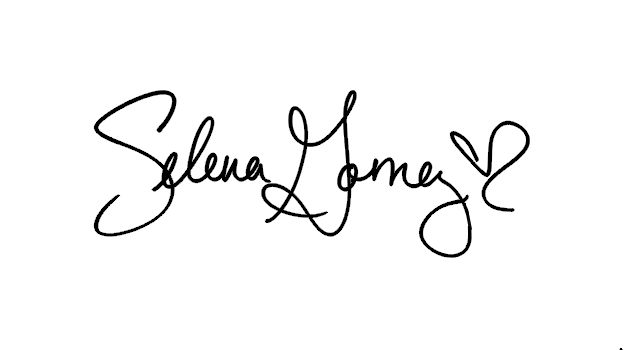 Selena Gomez